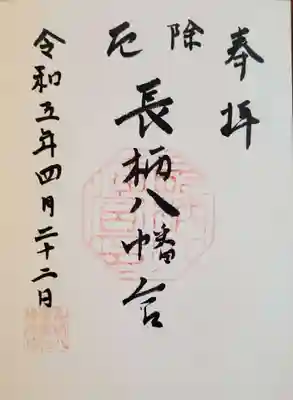 奉拝
厄除
長柄八幡宮
令和五年四月二十二日